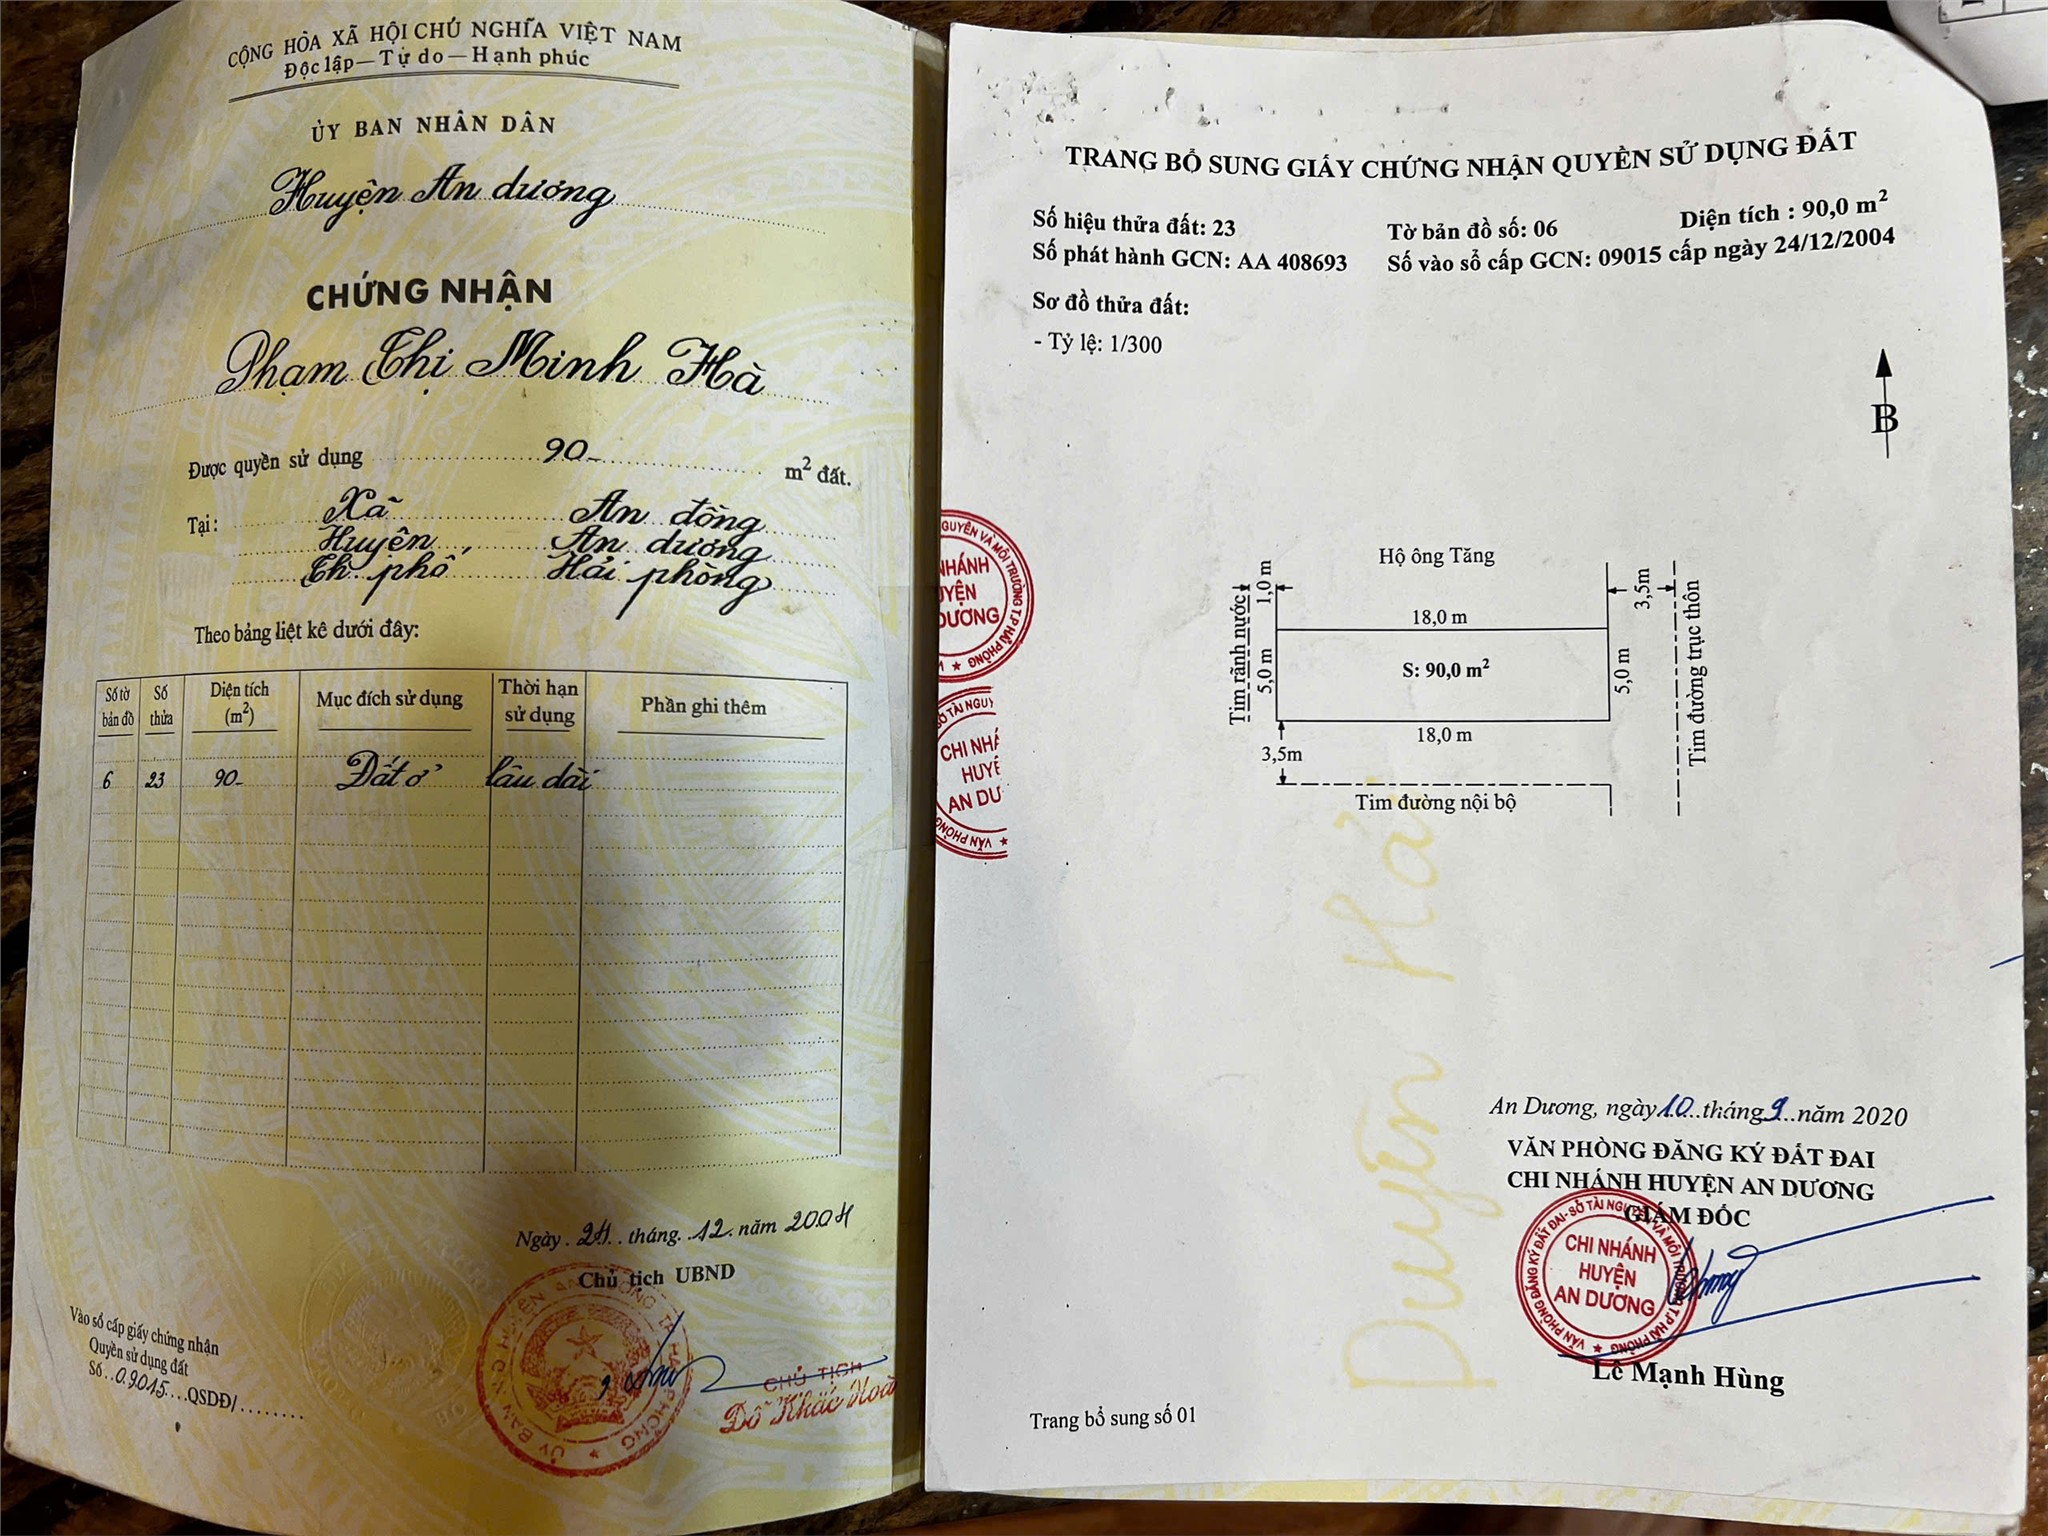 CỘNG HÒA XÃ HỘI CHỦ NGHĨA VIỆT NAM
Độc lập — Tự do — Hạnh phúc
ỦY BAN NHÂN DÂN
Huyện An dương
CHỨNG NHẬN
Phạm Thị Minh Hà
Được quyền sử dụng 90 m² đất.
Tại: Xã An đồng
Huyện An dương
Th phố Hải phòng
Theo bảng liệt kê dưới đây:
Số tờ bản đồ Số thửa Diện tích (m²) Mục đích sử dụng Thời hạn sử dụng Phần ghi thêm
6 23 90 Đất ở lâu dài
Ngày 24 tháng 12 năm 2004
Chủ tịch UBND
CHỦ TỊCH
Đỗ Khắc Hoà
Vào sổ cấp giấy chứng nhận
Quyền sử dụng đất
Số 09015 QSDĐ/
TRANG BỔ SUNG GIẤY CHỨNG NHẬN QUYỀN SỬ DỤNG ĐẤT
Số hiệu thửa đất: 23 Tờ bản đồ số: 06 Diện tích : 90,0 m²
Số phát hành GCN: AA 408693 Số vào sổ cấp GCN: 09015 cấp ngày 24/12/2004
Sơ đồ thửa đất:
- Tỷ lệ: 1/300
B
Hộ ông Tăng
1,0 m
3,5m
18,0 m
Tim rãnh nước
5,0 m
S: 90,0 m²
5,0 m
Tim đường trục thôn
18,0 m
3,5m
Tim đường nội bộ
NGUYÊN VÀ MÔI TRƯỜNG T.P HẢI PHÒNG
NHÁNH
UYỆN
DƯƠNG
CHI NHÁ
HUYỆ
AN DƯ
VĂN PHÒNG
Duyên Hải
An Dương, ngày 10 tháng 9 năm 2020
VĂN PHÒNG ĐĂNG KÝ ĐẤT ĐAI
CHI NHÁNH HUYỆN AN DƯƠNG
GIÁM ĐỐC
VĂN PHÒNG ĐĂNG KÝ ĐẤT ĐAI - SỞ TÀI NGUYÊN VÀ MÔI TRƯỜNG T.P HẢI PHÒNG
CHI NHÁNH
HUYỆN
AN DƯƠNG
Lê Mạnh Hùng
Trang bổ sung số 01